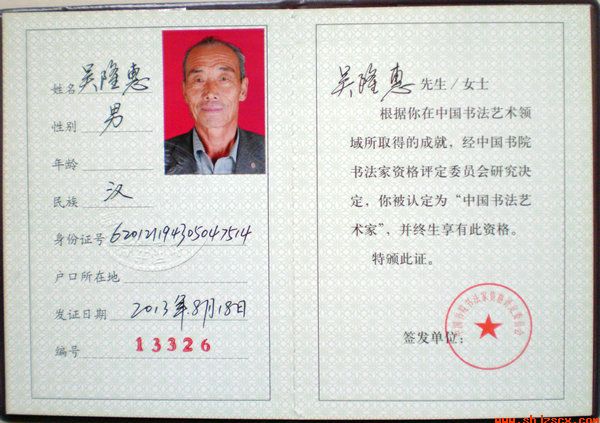 姓名 吴隆惠
性别 男
年龄
民族 汉
身份证号 620121194305047514
户口所在地
发证日期 2013年8月18日
编号 13326
吴隆惠 先生/女士
根据你在中国书法艺术领
域所取得的成就，经中国书院
书法家资格评定委员会研究决
定，你被认定为“中国书法艺
术家”，并终生享有此资格。
特颁此证。
签发单位：
中国书院书法家资格评定委员会